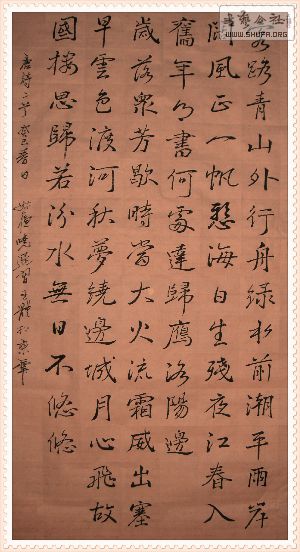 書藝公社
WWW.SHUFA.ORG
客路青山外行舟綠水前潮平兩岸
闊風正一帆懸海日生殘夜江春入
舊年鄉書何處達歸雁洛陽邊
歲落眾芳歇時當大火流霜威出塞
早雲色渡河秋夢繞邊城月心飛故
國樓思歸若汾水無日不悠悠
唐詩二首 癸巳春日